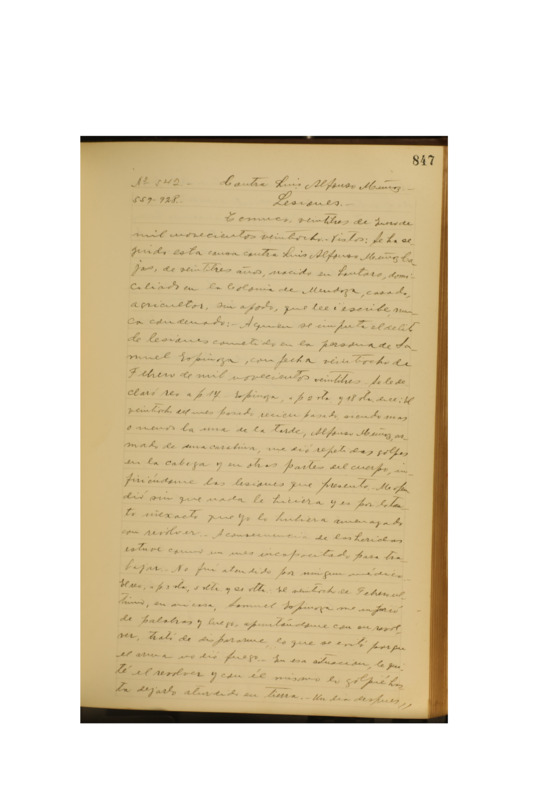 847
Contra Luis Alfonso Muñoz.-
559-928.- Lesiones.-
Temuco, veintitres de Enero de
mil novecientos veintiocho. Vistos; Se ha se
guido esta causa contra Luis Alfonso Muñoz
jas, de veintitres años, nacido en Lautaro, domi
ciliado en la Colonia de Mendoza, casado,
agricultor, sin apodo, que lee i escribe, nun
ca condenado;- A quien se imputa el delito
de lesiones cometido en la persona de Sa
muel Espinoza, con fecha veintiocho de
Febrero de mil novecientos veintitres. Se le de
claró reo a p 14. Espinoza, a p dice: El
veintiocho del mes pasado siendo mas
o menos la una de la tarde, Alfonso Muñoz, ar
mado de una carabina, me dió repetidos golpes
en la cabeza y en otras partes del cuerpo, in
firiéndome las lesiones que presento. Me
dió sin que nada le hiciera y es por lo tan
to inexacto que yo lo hubiera amenazado
con revolver. A consecuencia de las heridas
estuve como un mes incapacitado para tra
bajar. No fuí atendido por ningun médico.
El reo, El veintiocho de Febrero úl
timo, en mi casa, Samuel Espinoza me injurió
de palabras y luego apuntándome con un revol
ver, trató de dispararme, lo que no evitó porque
el arma no dió fuego. En esa situacion, le qui
té el revolver y con él mismo lo golpié has
ta dejarlo aturdido en tierra. Un dia despues